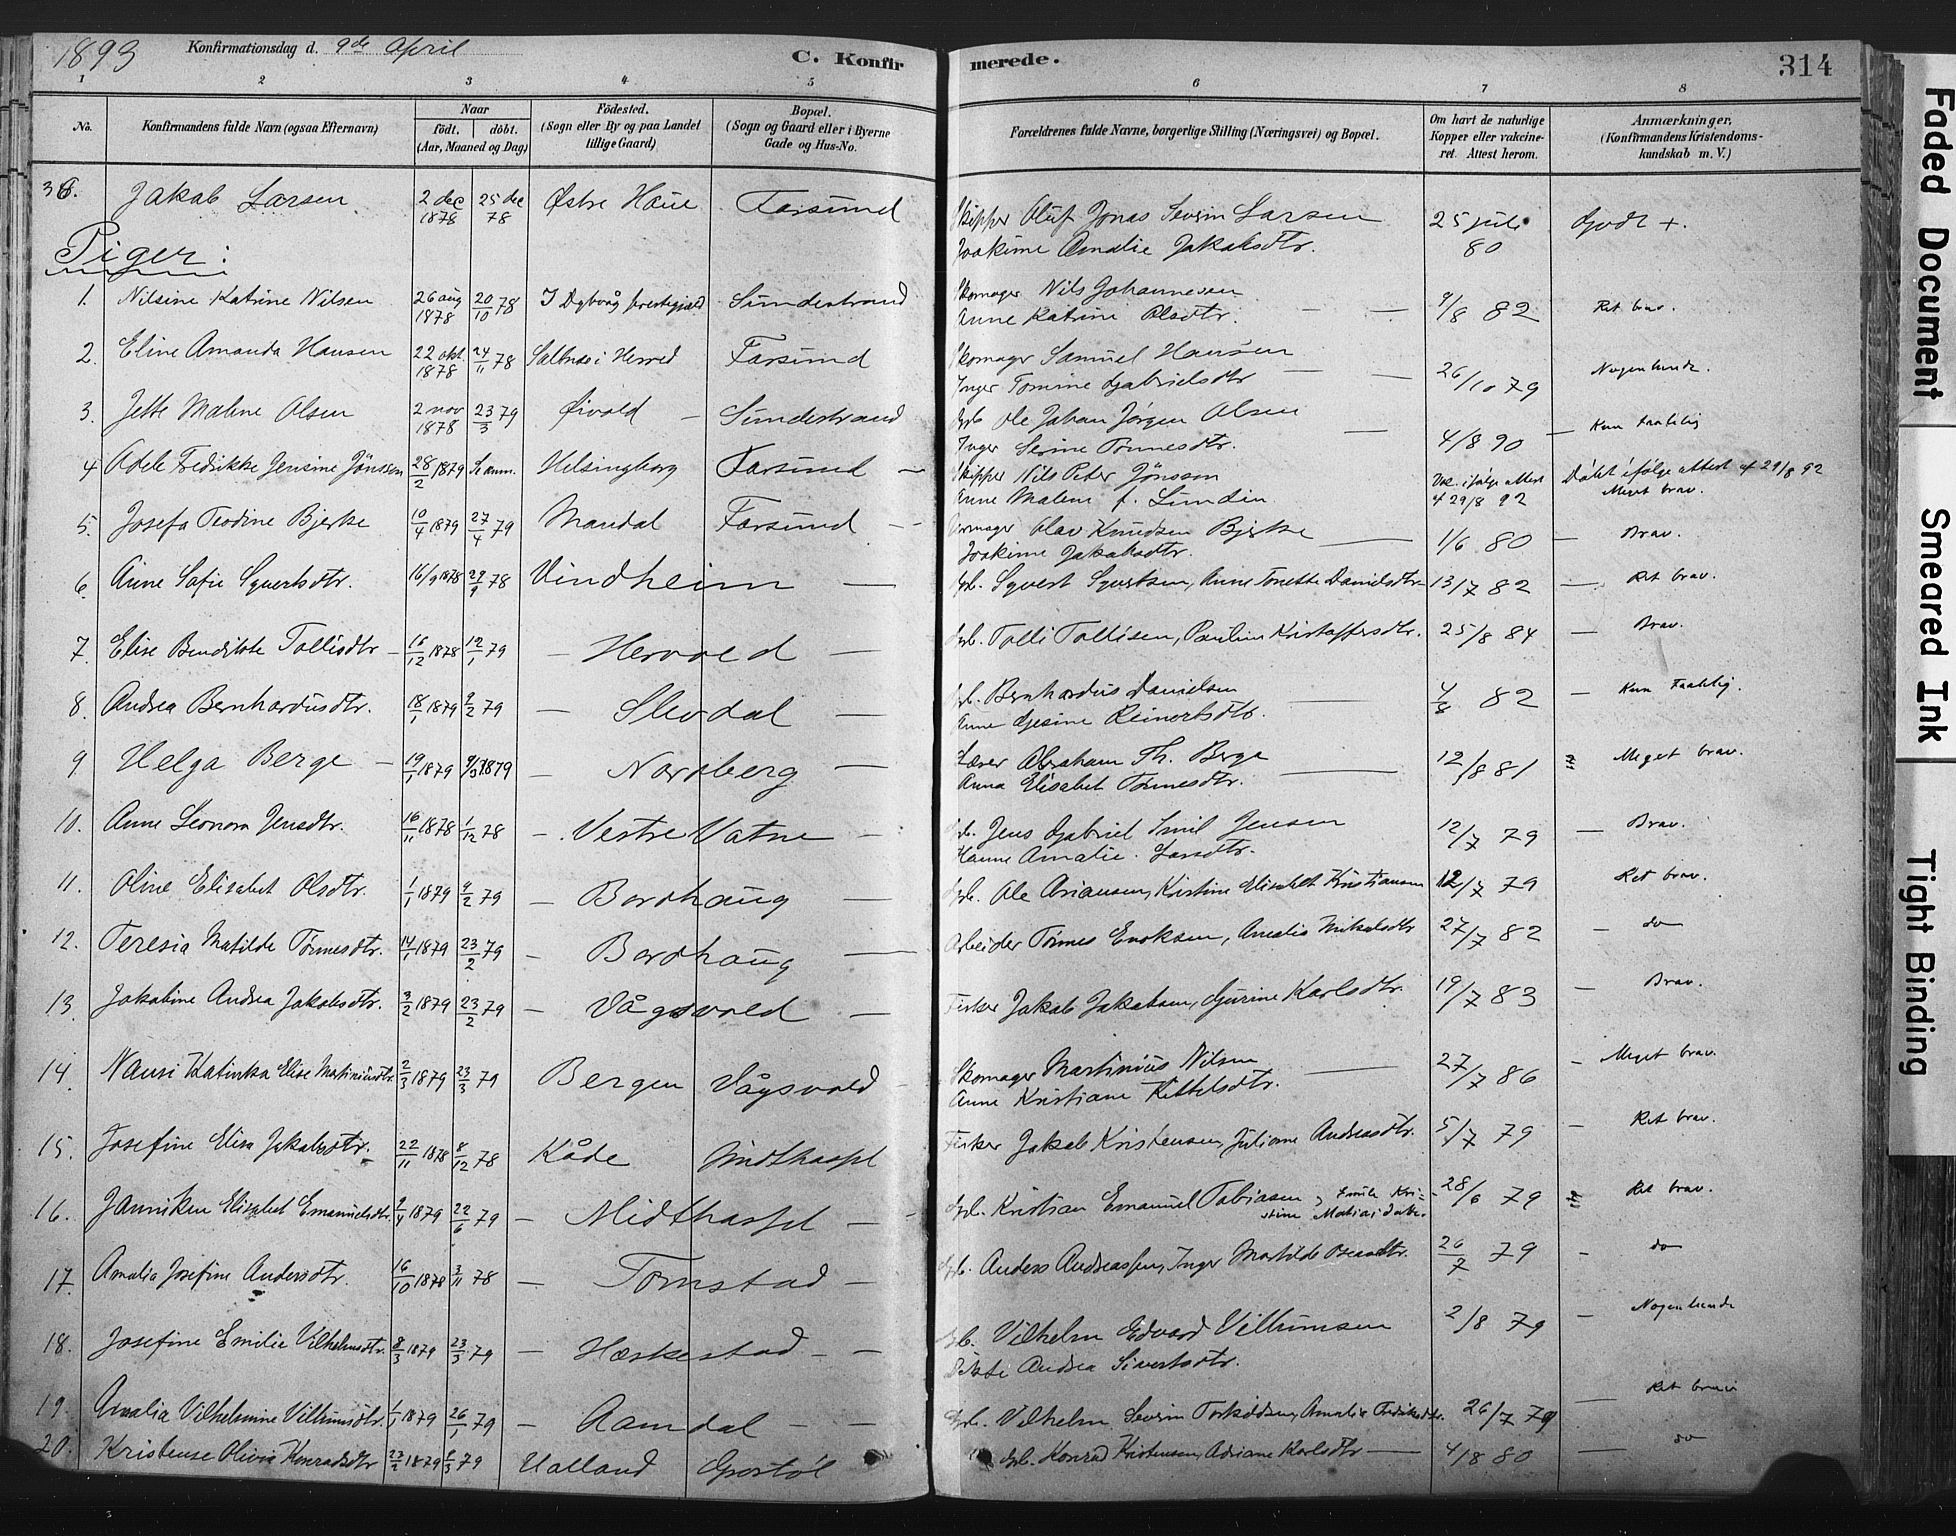 1893 Konfirmationsdag d. 9de April C. Konfir merede. 314
1 2 3 4 5 6 7 8
No. Konfirmandens fulde Navn (ogsaa Efternavn) Naar födt. döbt. (Aar, Maaned og Dag) Födested. (Sogn eller By og paa Landet tillige Gaard) Bopæl. (Sogn og Gaard eller i Byerne Gade og Hus-No. Forældrenes fulde Navne, borgerlige Stilling (Næringsvei) og Bopæl. Om havt de naturlige Kopper eller vakcineret. Attest herom. Anmærkninger, (Konfirmandens Kristendomskundskab m. V.)
36. Jakob Larsen 2 dec 1878 25 dec 78 Østre Haue Farsund Skipper Oluf Jonas Severin Larsen Joakime Amalie Jakobsdtr. 25 juli 80 Godt +.
Piger:
1. Nilsine Katrine Nilsen 26 aug 1878 20/10 78 I Dybvåg prestegjæld Sundestrand Skomager Nils Johannesen Anne Katrine Olsdtr. 9/8 82 Ret brav.
2. Eline Amanda Hansen 22 okt. 1878 24/11 78 i Herred Farsund Skomager Samuel Hansen Inger Tomine Gabrielsdtr 26/10 79 Nogenlunde.
3. Jette Malene Olsen 2 nov 1878 23/3 79 Øivold — Sundestrand Ole Johan Jörgen Olsen Inger Serine Tönnesdtr. 4/8 90 — Kun Taalelig
4 Adele Fredrikke Jensine Jönsson 28/2 1879 Se anm. Helsingborg Farsund — Skipper Nils Peter Jönsson Anne Malene f. Lundin Vac. ifølge attest af 29/8 92 Døbt ifølge attest af 29/8 92 Meget brav.
5. Josefa Teodine Bjerke 10/4 1879 27/4 79 Mandal Farsund Olav Knudsen Bjerke Joakime Jakobsdtr. 1/6 80 — Brav.
6. Anne Sofie Syvertsdtr. 16/9 1878 29/9 78 Vindheim — Syvert Syvertsen, Anne Tonette Danielsdtr 13/7 82 — Ret brav.
7. Elise Bendikte Tollisdtr — 16/12 1878 12/1 79 — Hervold — Tolli Tollisen, Pauline Kristoffersdtr. 25/8 84 — Brav.
8. Andrea Bernhardusdtr. 18/1 1879 9/2 79 — Slevdal — Bernhardus Danielsen Anne Gjesine Reinertsdtr. 4/8 82 — Kun Taalelig.
9 Helga Berge — 19/1 1879 9/3 1879 — Nordberg — Lærer Abraham Th. Berge Anna Elisabet Tönnesdtr. 12/8 81 Meget brav.
10. Anne Leonora Jensdtr. 16/11 1878 1/12 78 — Vestre Vatne — Jens Gabriel Emil Jensen Hanne Amalie Larsdtr. 12/7 79 — Brav.
11. Oline Elisabet Olsdtr. 1/1 1879 9/2 79 — Bordhaug — Ole Ariansen, Kristine Elisabet Kristiansen 12/7 79 Ret brav.
12. Teresia Matilde Tönnesdtr. 14/1 1879 23/2 79 — Bordhaug — Arbeider Tönnes Enoksen, Amalie Mikalsdtr 27/7 82 — do
13. Jakobine Andrea Jakobsdtr. 3/2 1879 23/2 79 — Vågsvold — Fisker Jakob Jakobsen, Gurine Karlsdtr. 19/7 83 — Brav.
14. Nausi Katinka Elise Martiniusdtr. 2/3 1879 23/3 79 Bergen Vågsvold Skomager Martinius Nilsen Anne Kristiane Kittelsdtr. 27/7 86 — Meget brav.
15. Josefine Elisa Jakobsdtr. 22/11 1878 8/12 78 Kåde Midthassel Fisker Jakob Kristensen, Juliane Andreasdtr. 5/7 79 — Ret brav.
16. Janniken Elisabet Emanuelsdtr. 2/4 1879 22/6 79 — Midthassel — Kristian Emanuel Tobiasen 28/6 79 Ret brav.
17. Amalia Josefine Andersdtr. 16/10 1878 3/11 78 — Tomstad — Anders Andreassen, Inger Matilde 26/7 79 — do
18. Josefine Emilie Vilhelmsdtr. 8/3 1879 23/3 79 — Hæskestad — Vilhelm Edvard Villumsen Andrea Sivertsdtr. 2/8 79 — Nogenlunde
19. Amalia Vilhelmine Villumsdtr. 1/1 1879 26/1 79 — Aamdal — Vilhelm Severin Torkildsen, Amalie 26/7 79 — Ret brav
20. Kristense Olivie Konradsdtr 23/2 1879 9/3 79 Ualland Gjostöl Konrad Kristensen, Adriane Karlsdtr — 4/8 80 — do
Faded Document
Smeared Ink
Tight Binding